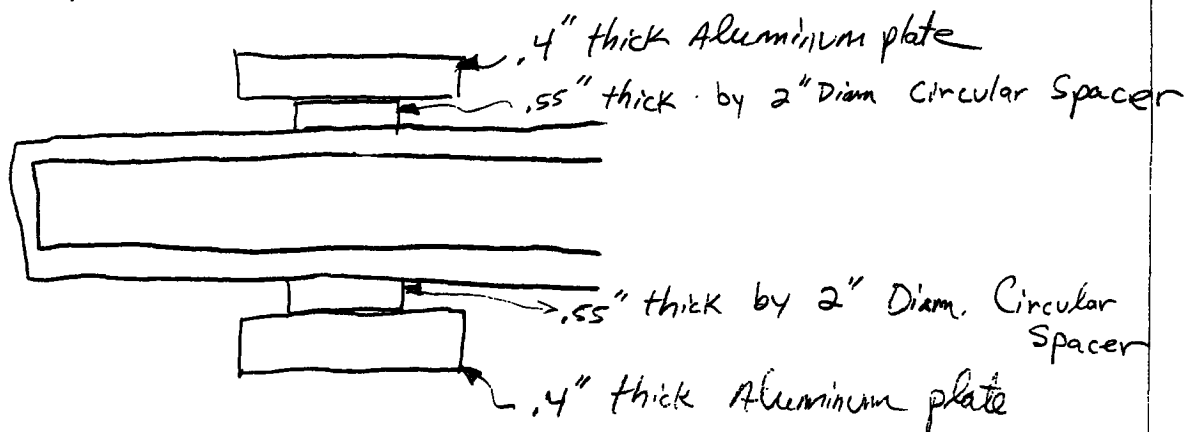 .4" thick Aluminum plate
.55" thick by 2" Diam Circular Spacer
.55" thick by 2" Diam. Circular
Spacer
.4" thick Aluminum plate